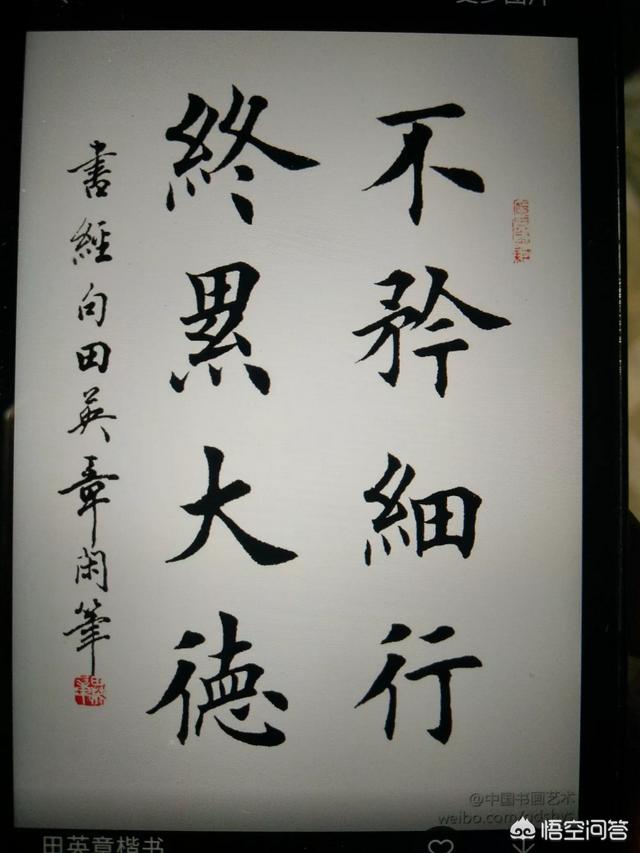 不矜細行
終累大德
書經句田英章閑筆
@中国书画艺术
田英章楷书
悟空问答